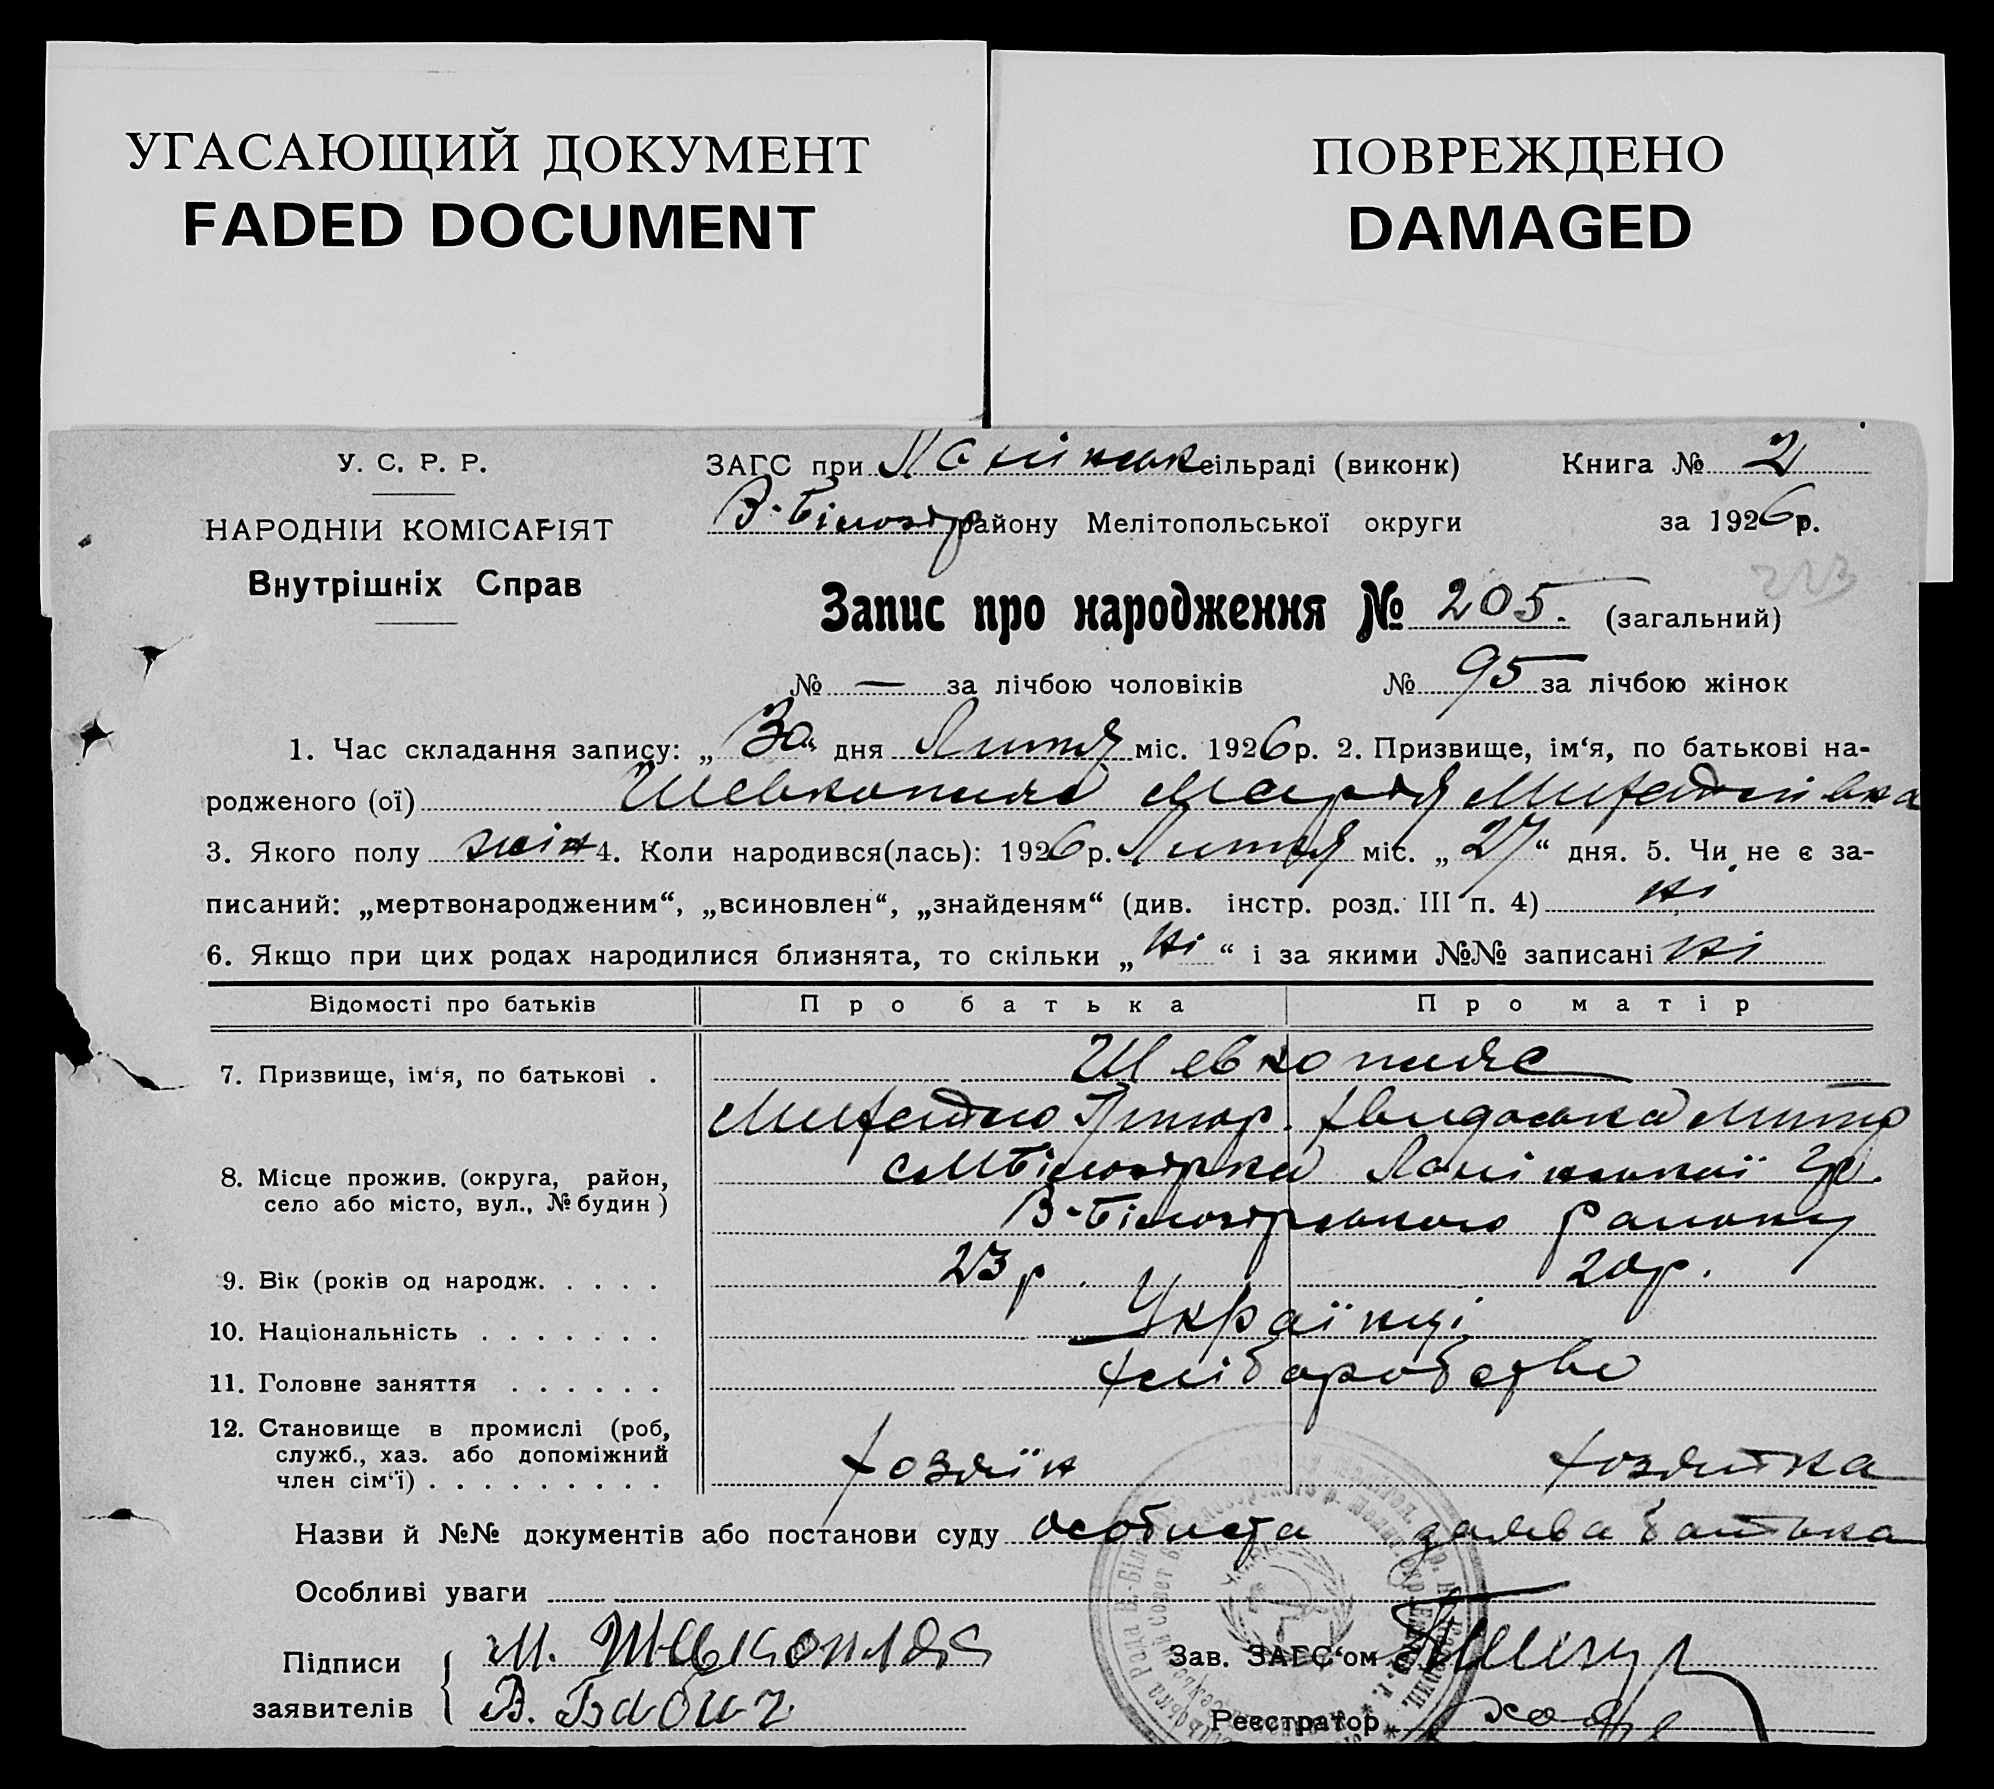 УГАСАЮЩИЙ ДОКУМЕНТ
FADED DOCUMENT
ПОВРЕЖДЕНО
DAMAGED
У. С. Р. Р.
НАРОДНІИ КОМІСАРІЯТ
Внутрішніх Справ
ЗАГС при сільраді (виконк) Книга № 2
В-Білозір району Мелітопольської округи за 1926 р.
223
Запис про народження № 205. (загальний)
№ — за лічбою чоловіків № 95 за лічбою жінок
1. Час складання запису: „ 30 “ дня Липня міс. 1926 р. 2. Призвище, ім‘я, по батькові на-
родженого (ої) Шевкопляс Марія Митофанівна
3. Якого полу жін 4. Коли народився(лась): 1926 р. Липня міс. „ 27 “ дня. 5. Чи не є за-
писаний: „мертвонародженим“, „всиновлен“, „знайденям“ (див. інстр. розд. III п. 4) ні
6. Якщо при цих родах народилися близнята, то скільки „ ні “ і за якими №№ записані ні
Відомості про батьків Про батька Про матір
7. Призвище, ім‘я, по батькові . Шевкопляс
Григор.
8. Місце прожив. (округа, район,
село або місто, вул., № будин )
В-Білозірського району
9. Вік (років од народж. . . . . 23 р. 20 р.
10. Національність . . . . . . . Українці
11. Головне заняття . . . . . . хліборобство
12. Становище в промислі (роб,
служб., хаз. або допоміжний
член сім‘ї) . . . . . . . . . хозяїн хозяйка
Назви й №№ документів або постанови суду особиста заява батька
Особливі уваги
Підписи
заявителів
М. Шевкопляс
Зав. ЗАГС‘ом
Реєстратор